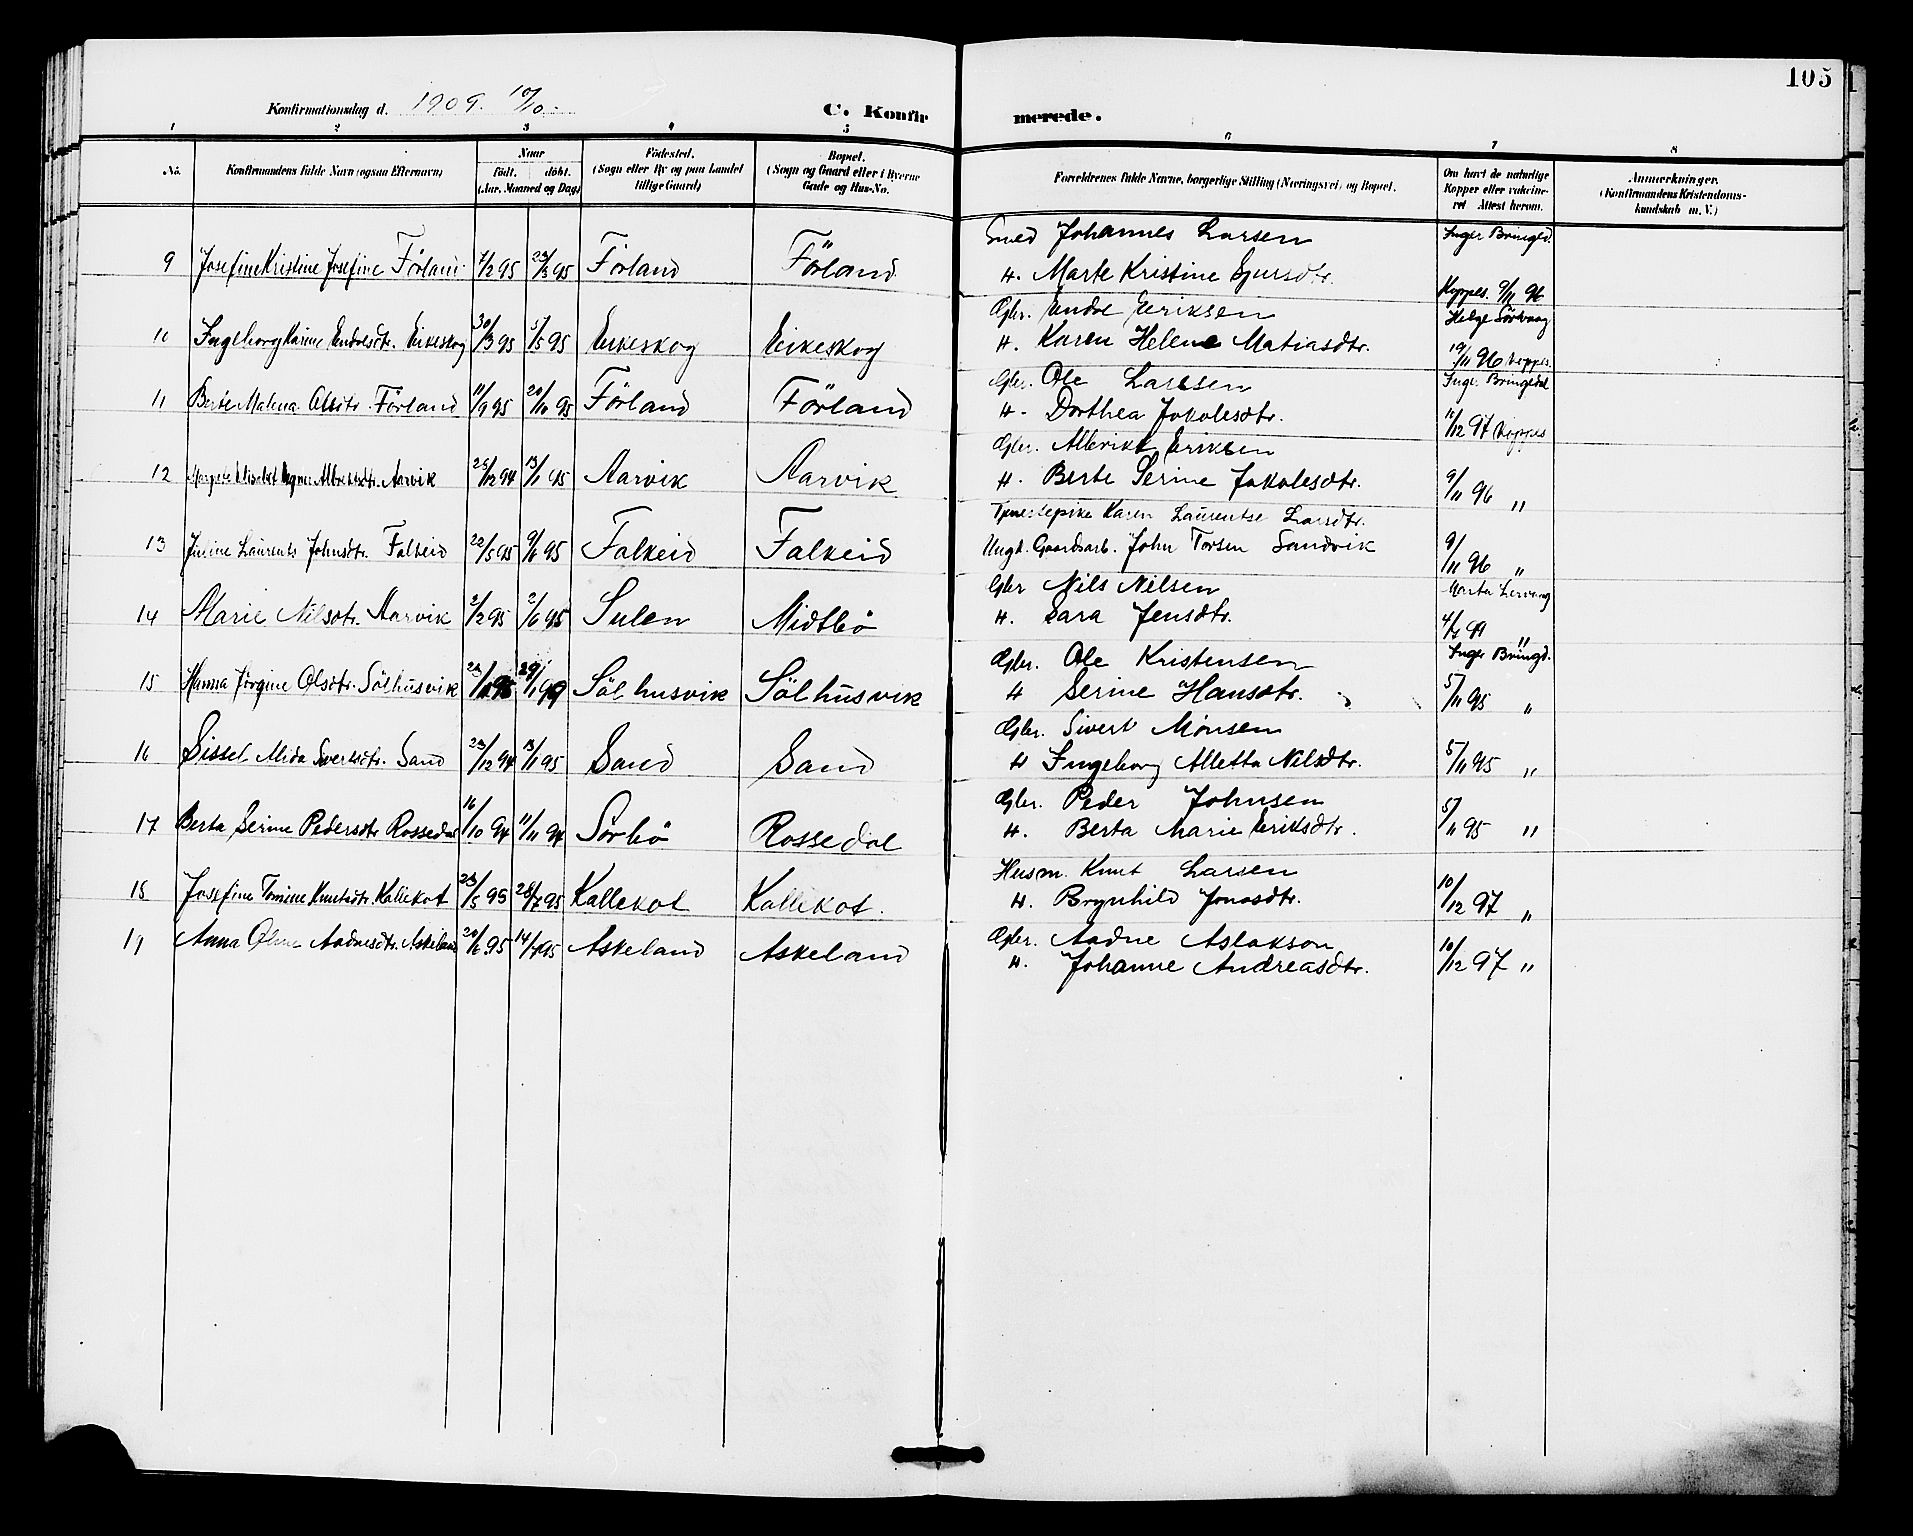 105
Konfirmationsdag d. 1909. 10/10.
C. Konfirmerede.
1 2 3 4 5 6 7 8
No. Konfirmandens fulde Navn (ogsaa Efternavn) Naar født. døbt. (Aar, Maaned og Dag) Fødested. (Sogn eller By og paa Landet tillige Gaard) Bopæl. (Sogn og Gaard eller i Byerne Gade og Hus-No. Forældrenes fulde Navne, borgerlige Stilling (Næringsvei) og Bopæl. Om havt de naturlige Kopper eller vakcineret Attest herom. Anmærkninger. (Konfirmandens Kristendomskundskab m. V.)
Smed Johannes Larsen
9 Josefine Kristine Josefine Förland 95 95 Förland Förland H. Marte Kristine Inger Bringed. Koppes. 9/11 96
Gbr. Endre Eriksen Helge
10 Ingeborg Karine Endresdtr. Eikeskog 30/3 95 5/5 95 Eikeskog Eikeskog H. Karen Helene Matiasdtr. 19/11 96 koppes.
Gbr. Ole Larsen
11 Berte Malena Olsdtr. Förland 11/9 95 20/10 95 Förland Förland H. Dorthea Jakobsdtr. 11/12 97 koppes
Gbr. Albrikt Eriksen
12 Aarvik 25/12 94 13/1 95 Aarvik Aarvik H. Berte Serine Jakobsdtr. 9/11 96 "
Tjenestepike Karen Laurentse Larsdtr.
13 Laurents Johnsdtr. Falkeid 22/5 95 9/6 95 Falkeid Falkeid Ungk. Gaardsarb. John Torsen Sandvik 9/11 96 "
Gbr Nils Nilsen Marta
14 Marie Nilsdtr. Aarvik 2/2 95 2/6 95 Sulen Midtbö H. Sara Jensdtr. "
Gbr. Ole Kristensen Inger Bringd.
15 Hanna Jørgine Olsdtr. Sölhusvik Sölhusvik Sölhusvik H Serine Hansdtr. 5/11 95 "
Gbr. Sivert Mønsen
16 Sissel Alida Sivertsdtr. Sand 23/12 94 13/1 95 Sand Sand H Ingeborg Alletta Nilsdtr. 5/11 95 "
Gbr. Peder Johnsen
17 Berta Serine Pedersdtr Rossedal 16/10 94 11/11 94 Sørbö Rossedal H. Berta Marie Eriksdtr. 5/11 95 "
Husm. Knut Larsen
18 Josefine Tomine Knutsdtr. Kallekot 23/5 95 28/7 95 Kallekot Kallekot. H. Brynhild Jonasdtr. 10/12 97 "
Gbr. Aadne Aslakson
19 Anna Oline Aadnesdtr. Askeland 20/6 95 14/7 95 Askeland Askeland H. Johanne Andreasdtr. 10/12 97 "